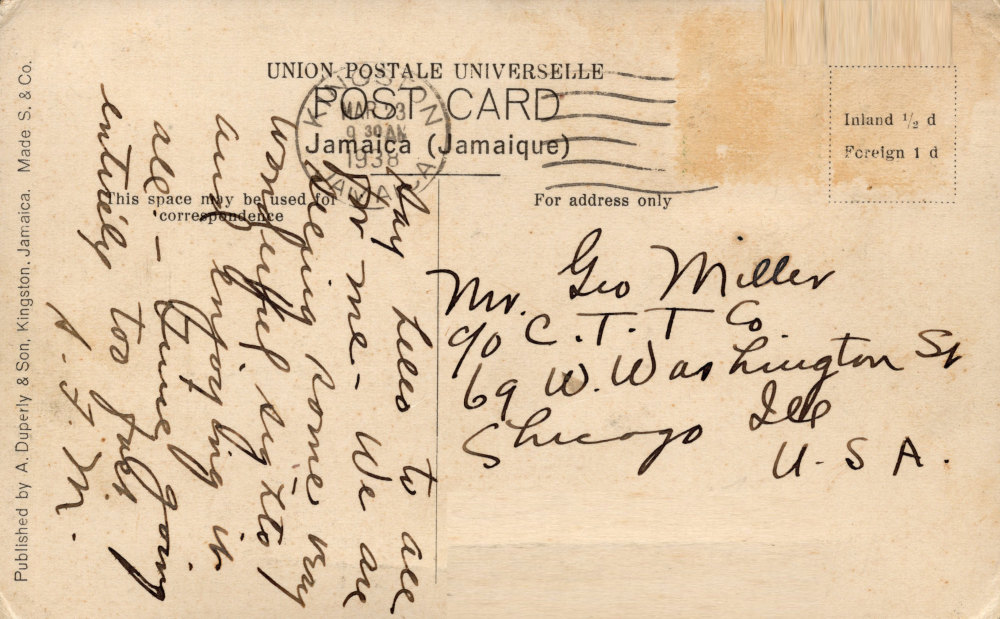 UNION POSTALE UNIVERSELLE
POST CARD
Jamaica (Jamaique)
KINGSTON
MAR 23
9 30 AM
1938
JAMAICA
Inland ½ d
Foreign 1 d
This space may be used for
correspondence
For address only
Say hello to all
for me - We are
seeing some very
wonderful sights
and enjoying it
all - Time going
entirely too fast
A. F. M.
Mr. Geo Miller
c/o C. T. T Co
69 W. Washington St
Chicago Ill
U. S A.
Published by A. Duperly & Son, Kingston, Jamaica. Made S. & Co.